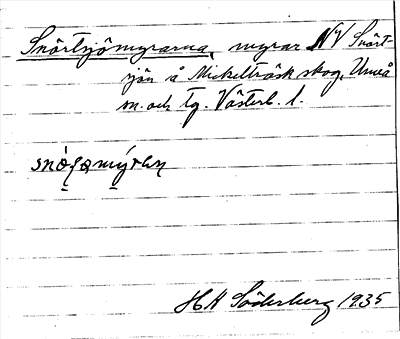 Snörtjömyrarna, myrar NV Snört-
jön å Mickelträsk skog, Umeå
m. och tg. Västerb. l.
H A Söderberg 1935